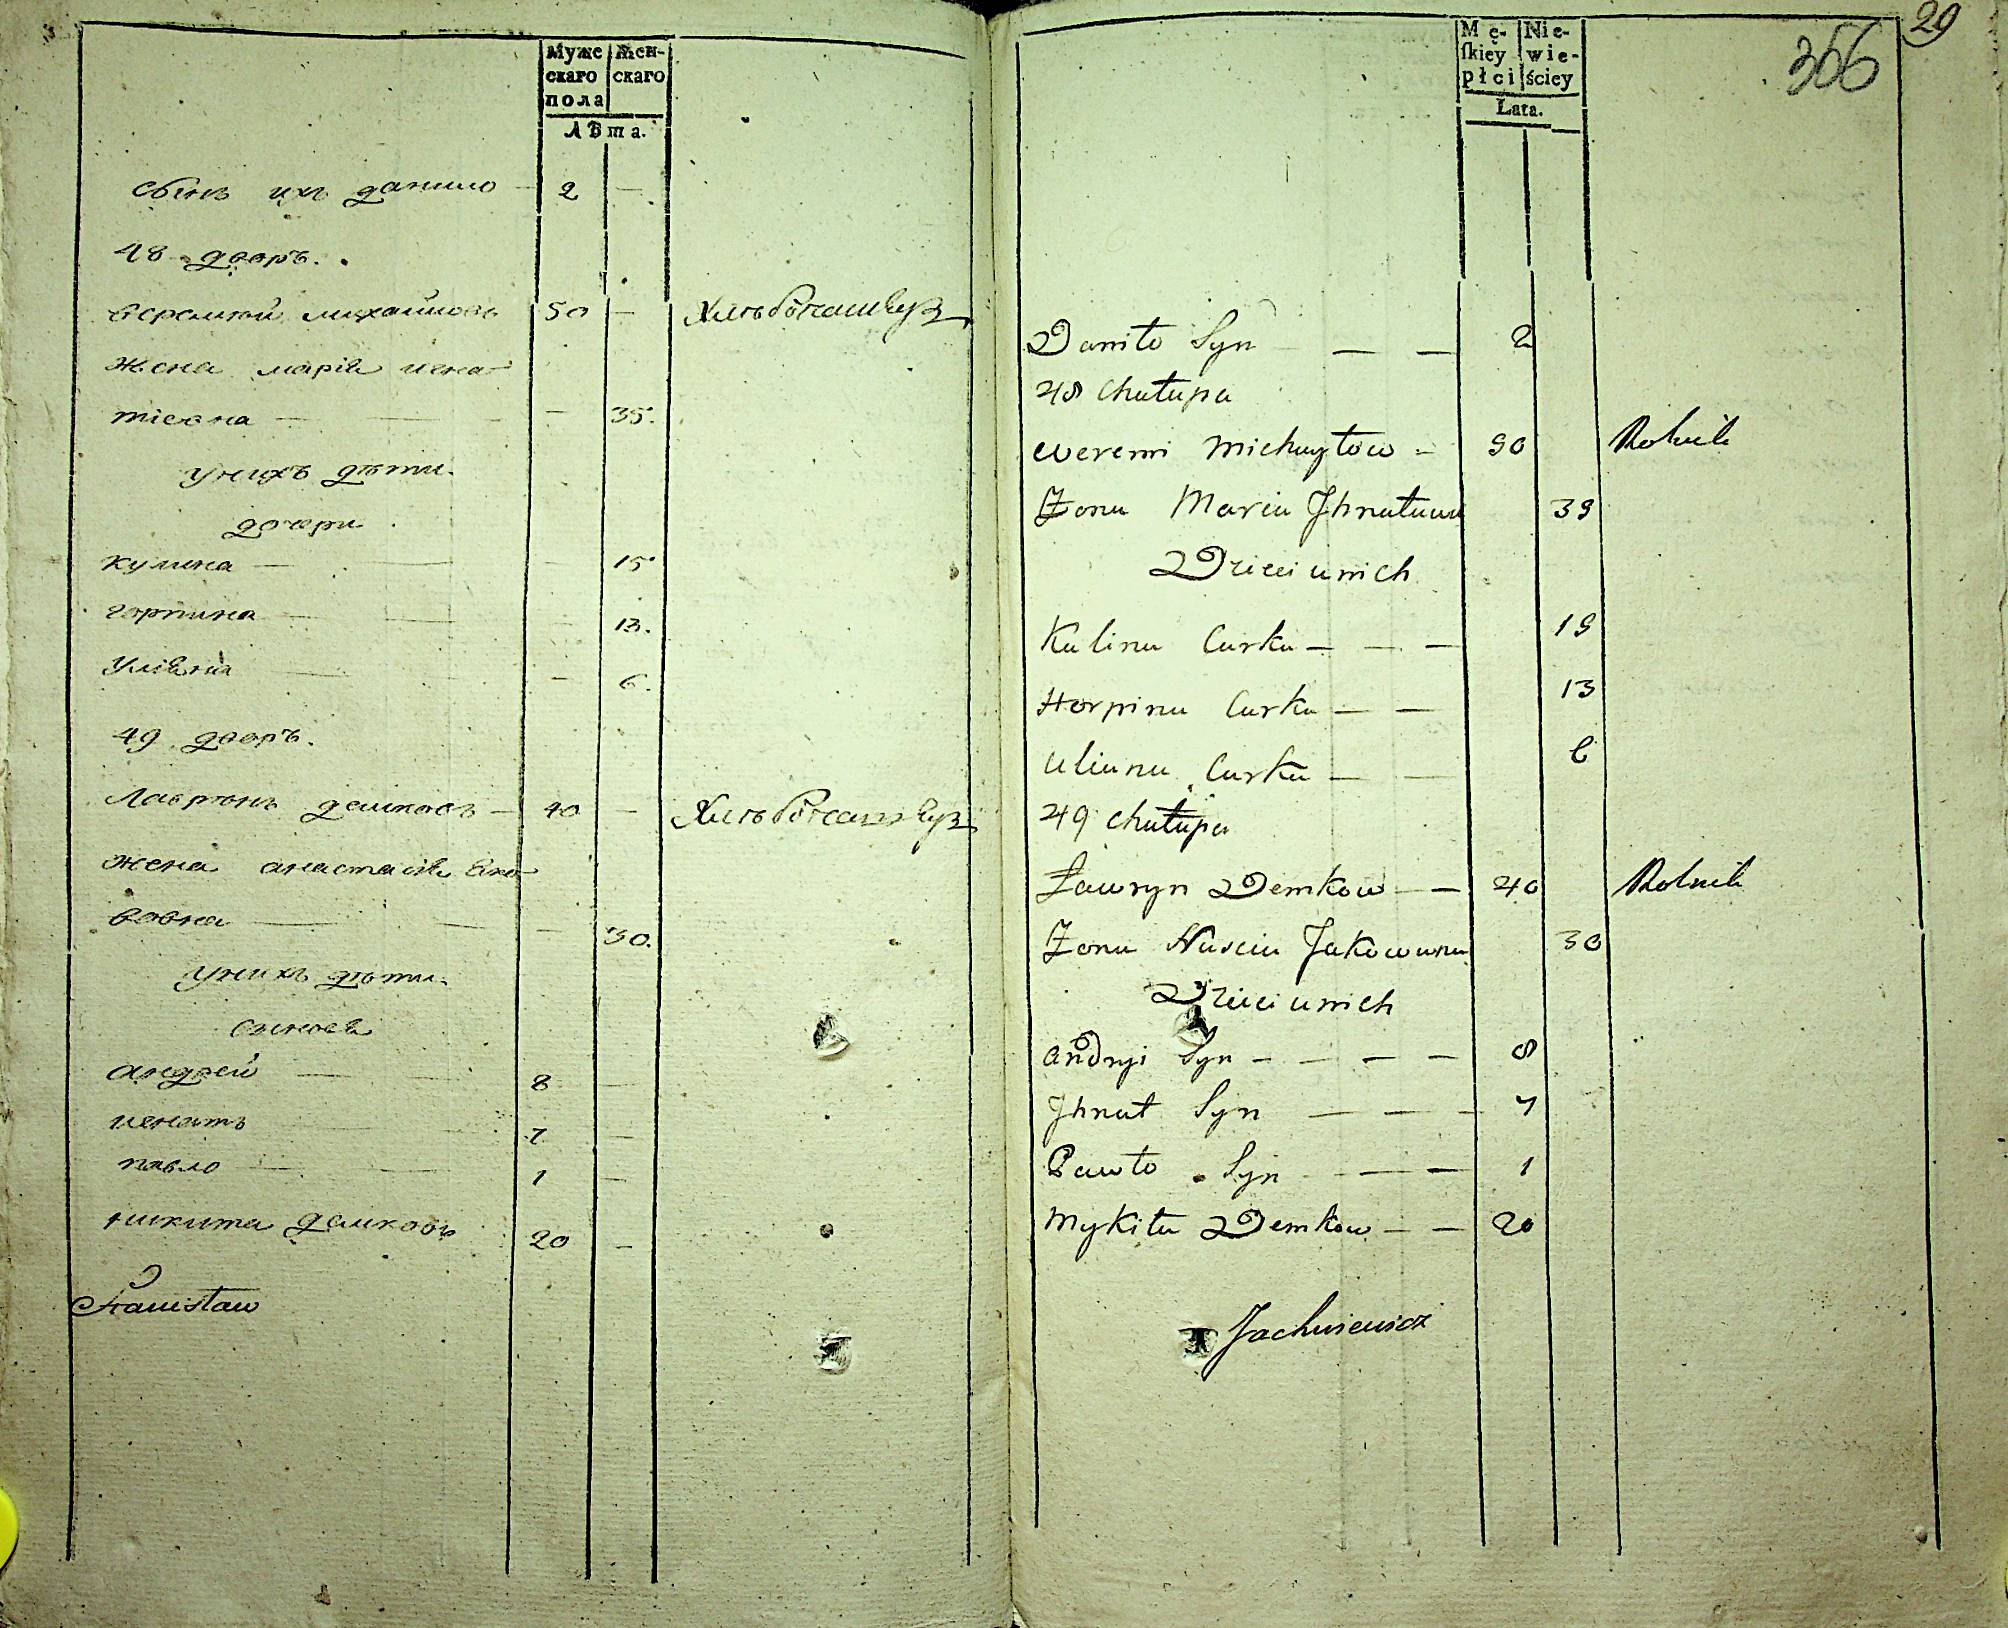 Муже скаго пола
Жен- скаго
Лѣта.
сынъ ихъ данило — 2 —
48 дворъ.
веремѣй михайловъ 50 — Хлѣбопашецъ
жена марія игна-
тіевна — — 35.
у нихъ дѣти.
дочери
кулина — — — 15
горпина — — — 13.
Уліяна — — — 6.
49 дворъ.
Лавринъ демковъ — 40 — Хлѣбопашецъ
жена анастасія яко-
вовна — — 30.
у нихъ дѣти.
сыновя
андрей — — 8 —
игнатъ — 7 —
павло — — 1 —
никита демковъ 20 —
Stanisław
29
366
Mę- skiey płci
Nie- wie- ściey
Lata.
Daniło Syn — — 2
48 Chałupa
Weremi Michayłow — 50 Rolnik
Żona Maria Jhnatowa 35
Dzieci u nich
Kulina Curka — — — 15
Horpina Curka — — 13
Uliana Curka — — 6
49 Chałupa
Ławryn Demkow — — 40 Rolnik
Żona Nascia Jakowowna 30
Dzieci u nich
Andryi Syn — — — — 8
Jhnat Syn — — — 7
Pawło Syn — — — 1
Mykita Demkow — — 20
Jachniewicz